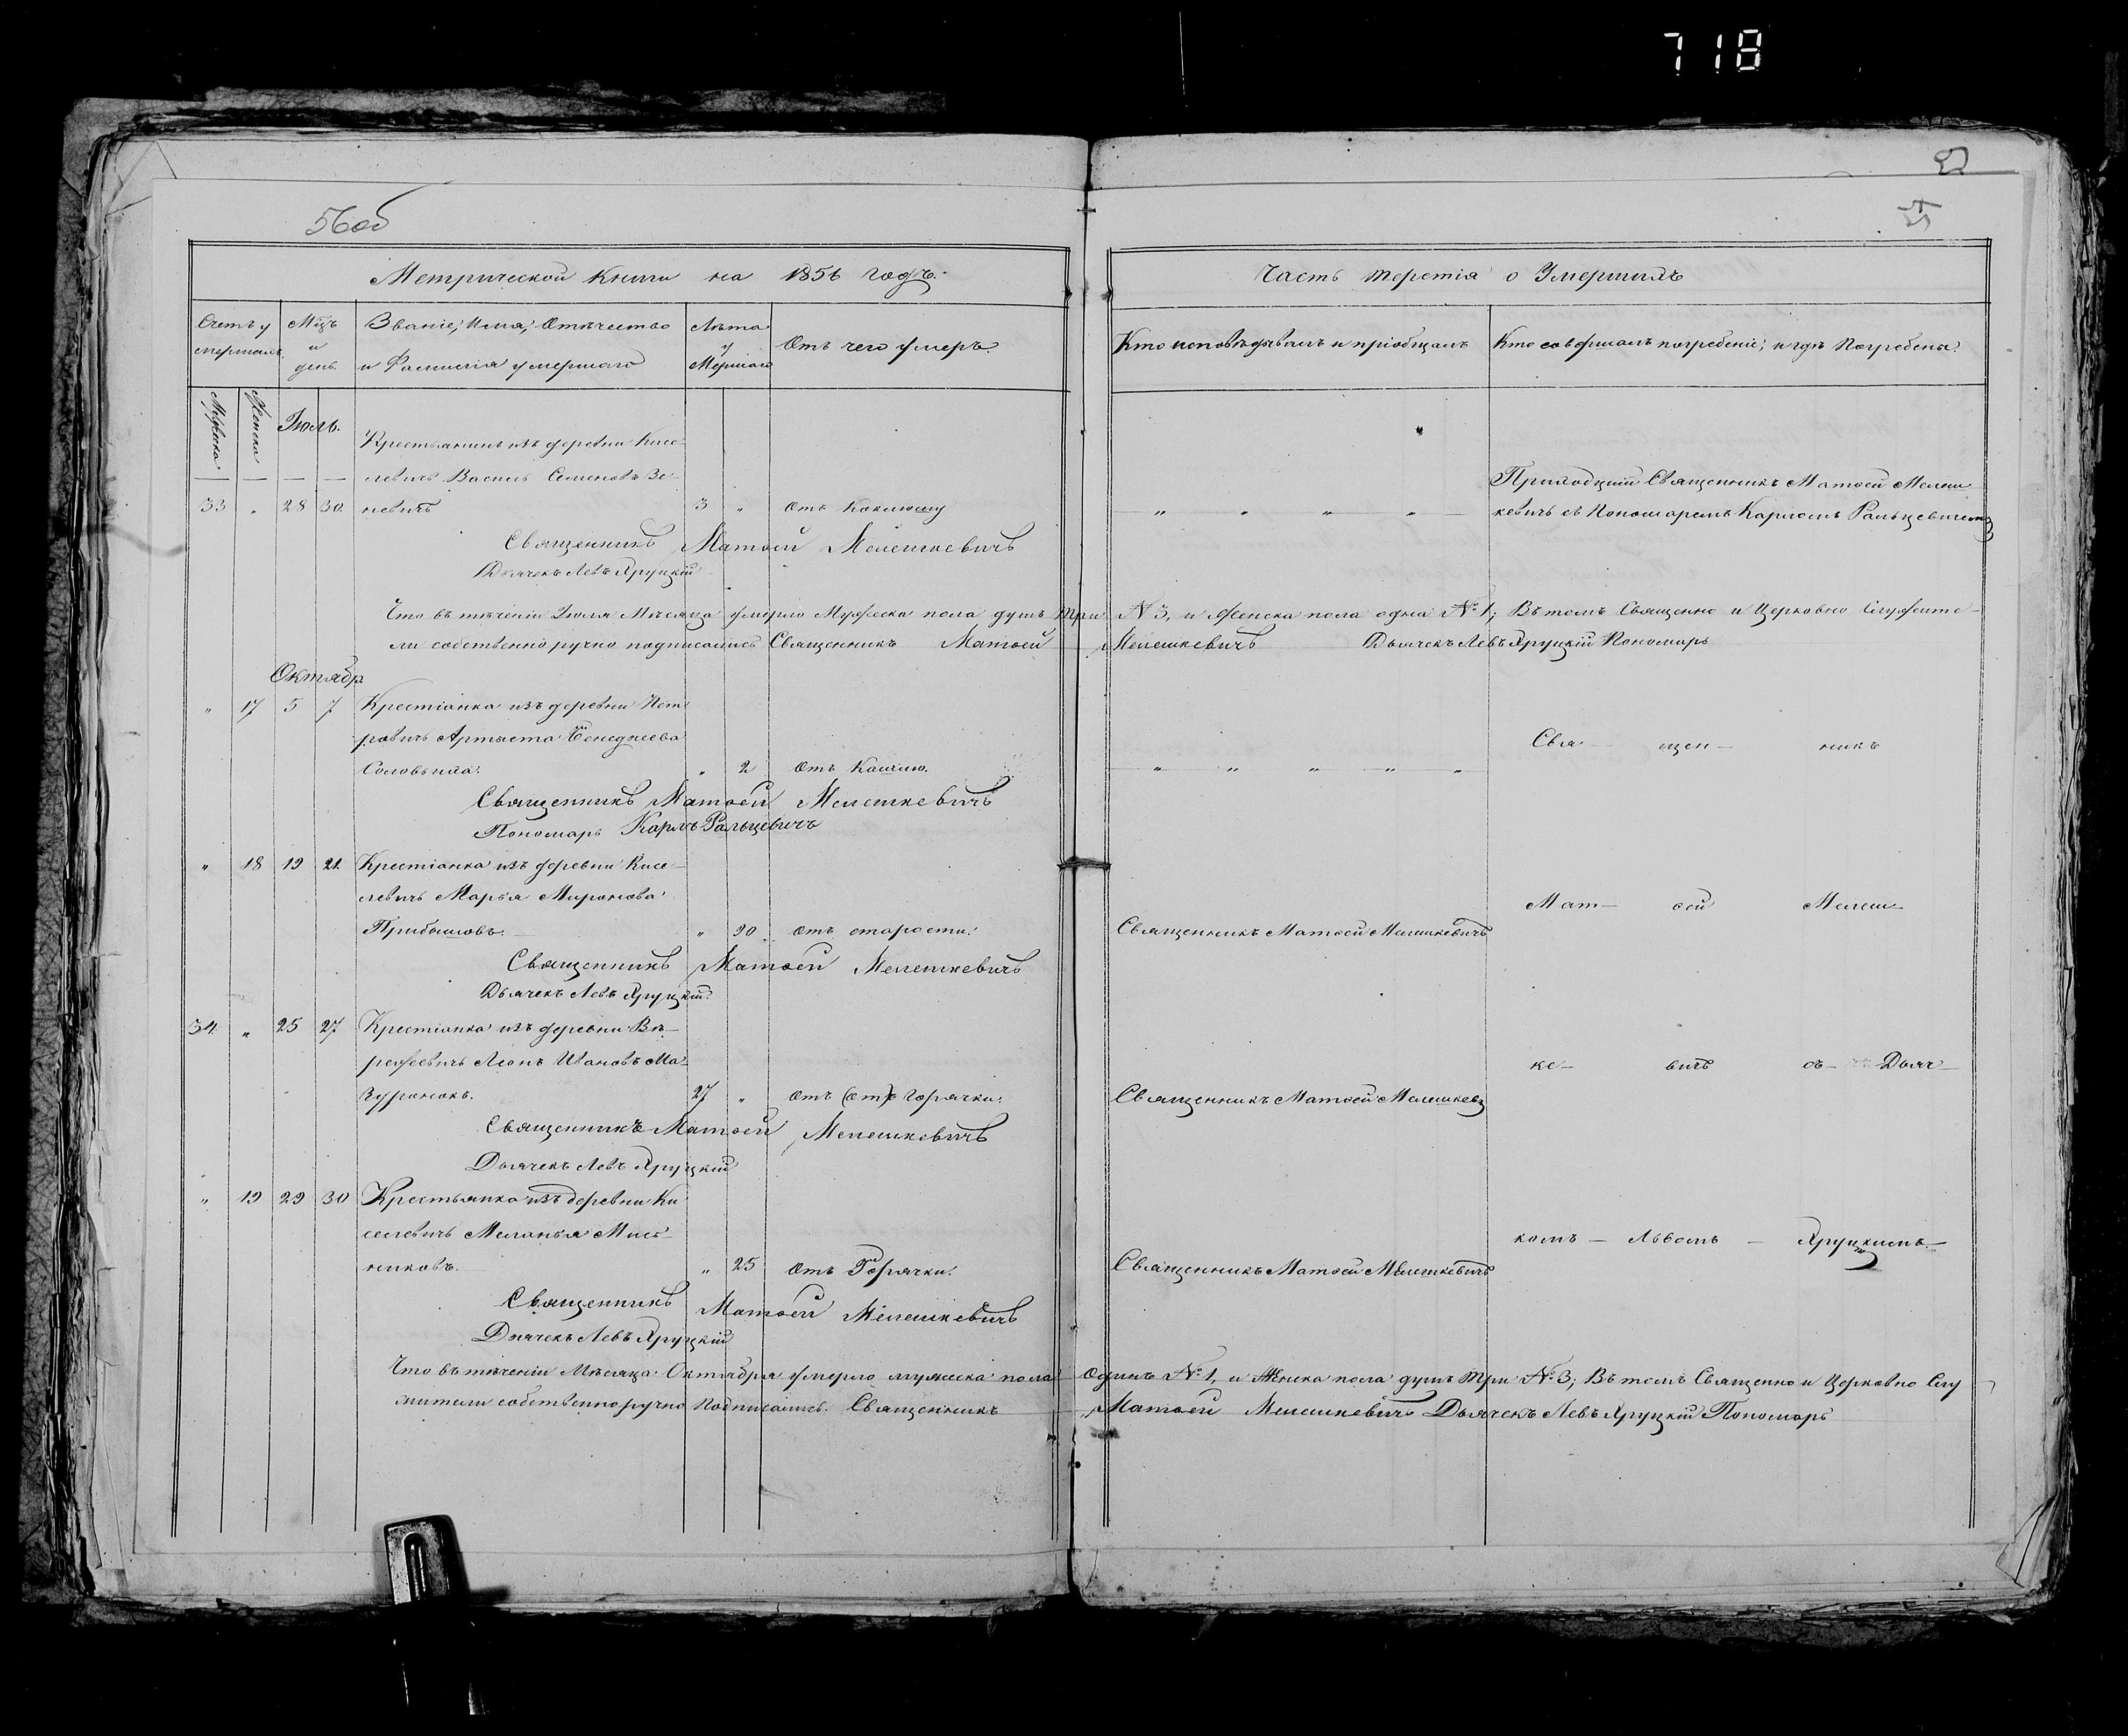 718
56об
Метрической Книги на 1856 годъ.
Часть третія о Умершихъ
Счетъ у
мершихъ.
Мѣцъ
и
день.
Званіе, Имя, Отечество
и Фамилія умершаго
Лѣта
у
Мершаго
Отъ чего умеръ.
Кто исповѣдывалъ и пріобщалъ
Кто совершалъ погребеніе, и гдѣ Погребены.
Мужеска
Женска
Іюль.
Крестьянинъ изъ деревни Кисе-
левичъ Василь Семеновъ Зе-
33 " 28 30 невичъ 3 " отъ Коклюшу
Приходскій Священникъ Матѳей Мелеш
кевичъ съ Пономаремъ Карломъ Ральцевичемъ
Священникъ Матѳей Мелешкевичъ
Дьячекъ Левъ Яруцкій
Что въ теченіи Іюля Мѣсяца умерло Мужеска пола душъ три № 3, и Женска пола одна № 1; Въ томъ Священно и Церковно Служите-
ли собственно ручно подписались Священникъ Матѳей Мелешкевичъ Дьячекъ Левъ Яруцкій Пономарь
Октябр
" 17 5 7 Крестіанка изъ деревни Пет
ровичъ
Соловьила. " 2 отъ Кашлю.
Свя- щен- никъ
Священникъ Матѳей Мелешкевичъ
Пономарь Карлъ Ральцевичъ
" 18 19 21. Крестіанка изъ деревни Кисе-
левичъ Марья Миронова
Прибышовъ. " 90 отъ старости. Священникъ Матѳей Мелешкевичъ
Мат- ѳей Мелеш-
Священникъ Матѳей Мелешкевичъ
Дьячекъ Левъ Яруцкій.
34 " 25 27 Крестіанка изъ деревни Ве-
режевичъ Леонъ Ивановъ Ма-
зуронокъ. 27 " отъ (отъ) Горячки. Священникъ Матѳей Мелешкев
ке- вичъ съ- Дьяч-
Священникъ Матѳей Мелешкевичъ
Дьячекъ Левъ Яруцкій
" 19 29 30 Крестьянка изъ деревни Ки
селевичъ Меланья Мись-
никовъ. " 25 отъ Горячки. Священникъ Матѳей Мелешкевичъ
комъ - Львомъ - Яруцкимъ-
Священникъ Матѳей Мелешкевичъ
Дьячекъ Левъ Яруцкій
Что въ теченіи Мѣсяца Октября умерло мужеска пола Одинъ № 1, и Женска пола душъ три № 3; Въ томъ Священно и Церковно Слу
жители собственноручно Подписались. Священникъ Матѳей Мелешкевичъ Дьячекъ Левъ Яруцкій Пономарь